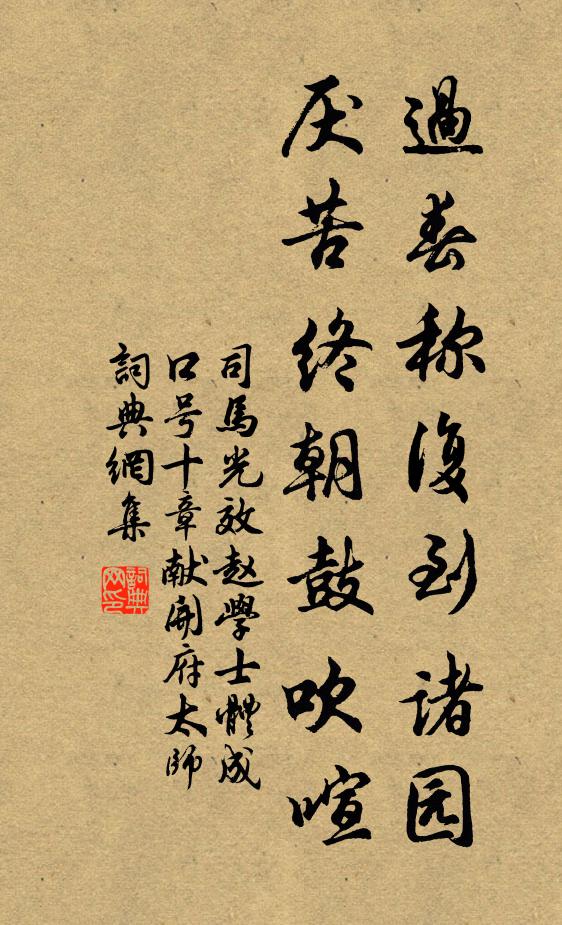 過春称復到诸园
厌苦终朝鼓吹喧
司馬光效赵學士體成
口号十章献開府太師
詞典網集
詞典网印